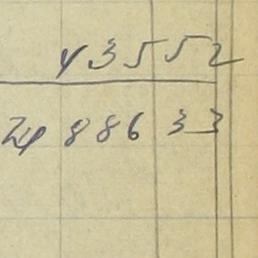 43552
2488633